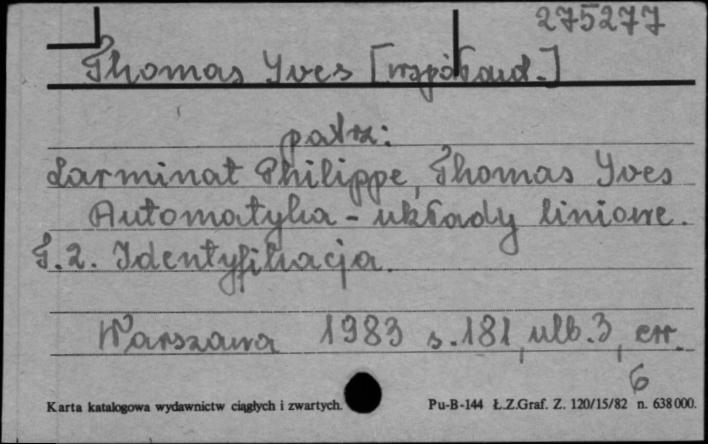 275277
Thomas Yves [współaut.]
patrz:
Larminat Philippe, Thomas Yves
Automatyka - układy liniowe.
T.2. Identyfikacja.
Warszawa 1983 s.181, ulb.3, err.
6
Karta katalogowa wydawnictw ciągłych i zwartych. Pu-B-144 Ł.Z.Graf. Z. 120/15/82 n. 638 000.